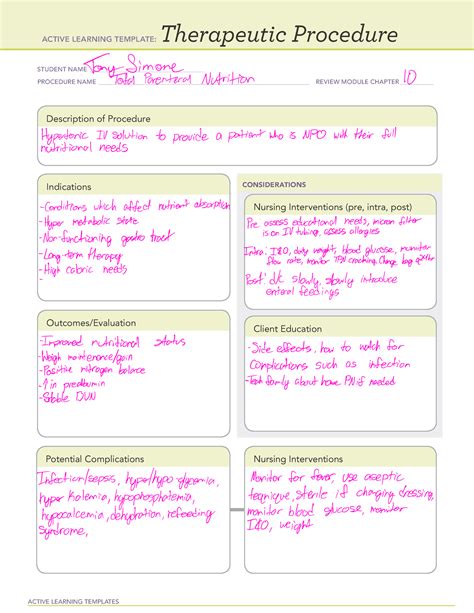 ACTIVE LEARNING TEMPLATE: Therapeutic Procedure
STUDENT NAME Tony Simone
PROCEDURE NAME Total Parenteral Nutrition REVIEW MODULE CHAPTER 10
Description of Procedure
Hypertonic IV solution to provide a patient who is NPO with their full
nutritional needs
Indications
-Conditions which affect nutrient absorption
-Hyper metabolic state
-Non-functioning gastro tract
-Long-term therapy
-High caloric needs
-
CONSIDERATIONS
Nursing Interventions (pre, intra, post)
Pre assess educational needs, micron filter
is on IV tubing, assess allergies
Intra: I&O, daily weight, blood glucose, monitor
flow rate, monitor TPN cracking. Change bag
Post: d/c slowly, slowly introduce
enteral feedings
Outcomes/Evaluation
-Improved nutritional status
-Weigh maintenance/gain
-Positive nitrogen balance
-↑ in prealbumin
-Stable BUN
Client Education
-Side effects, how to watch for
complications such as infection
-Teach family about home PN if needed
Potential Complications
Infection/sepsis, hyper/hypo glycemia,
hyper kalemia, hypophosphatemia,
hypocalcemia, dehydration, refeeding
syndrome,
Nursing Interventions
Monitor for fever, use aseptic
technique, sterile if changing dressing,
monitor blood glucose, monitor
I&O, weight
ACTIVE LEARNING TEMPLATES